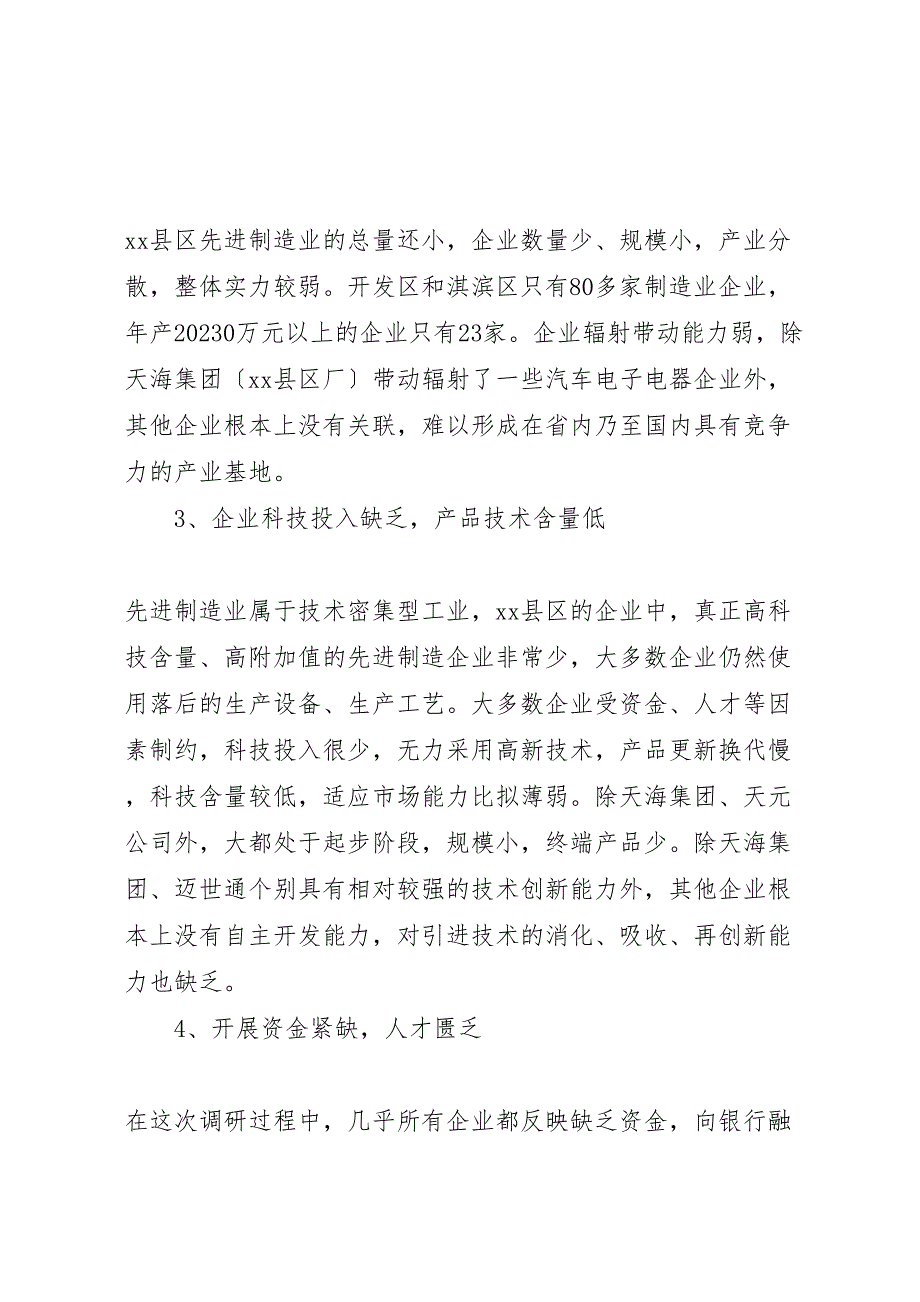 xx县区先进制造业的总量还小，企业数量少、规模小，产业分
散，整体实力较弱。开发区和淇滨区只有80多家制造业企业，
年产20230万元以上的企业只有23家。企业辐射带动能力弱，除
天海集团〔xx县区厂〕带动辐射了一些汽车电子电器企业外，
其他企业根本上没有关联，难以形成在省内乃至国内具有竞争
力的产业基地。
3、企业科技投入缺乏，产品技术含量低
先进制造业属于技术密集型工业，xx县区的企业中，真正高科
技含量、高附加值的先进制造企业非常少，大多数企业仍然使
用落后的生产设备、生产工艺。大多数企业受资金、人才等因
素制约，科技投入很少，无力采用高新技术，产品更新换代慢
，科技含量较低，适应市场能力比拟薄弱。除天海集团、天元
公司外，大都处于起步阶段，规模小，终端产品少。除天海集
团、迈世通个别具有相对较强的技术创新能力外，其他企业根
本上没有自主开发能力，对引进技术的消化、吸收、再创新能
力也缺乏。
4、开展资金紧缺，人才匮乏
在这次调研过程中，几乎所有企业都反映缺乏资金，向银行融